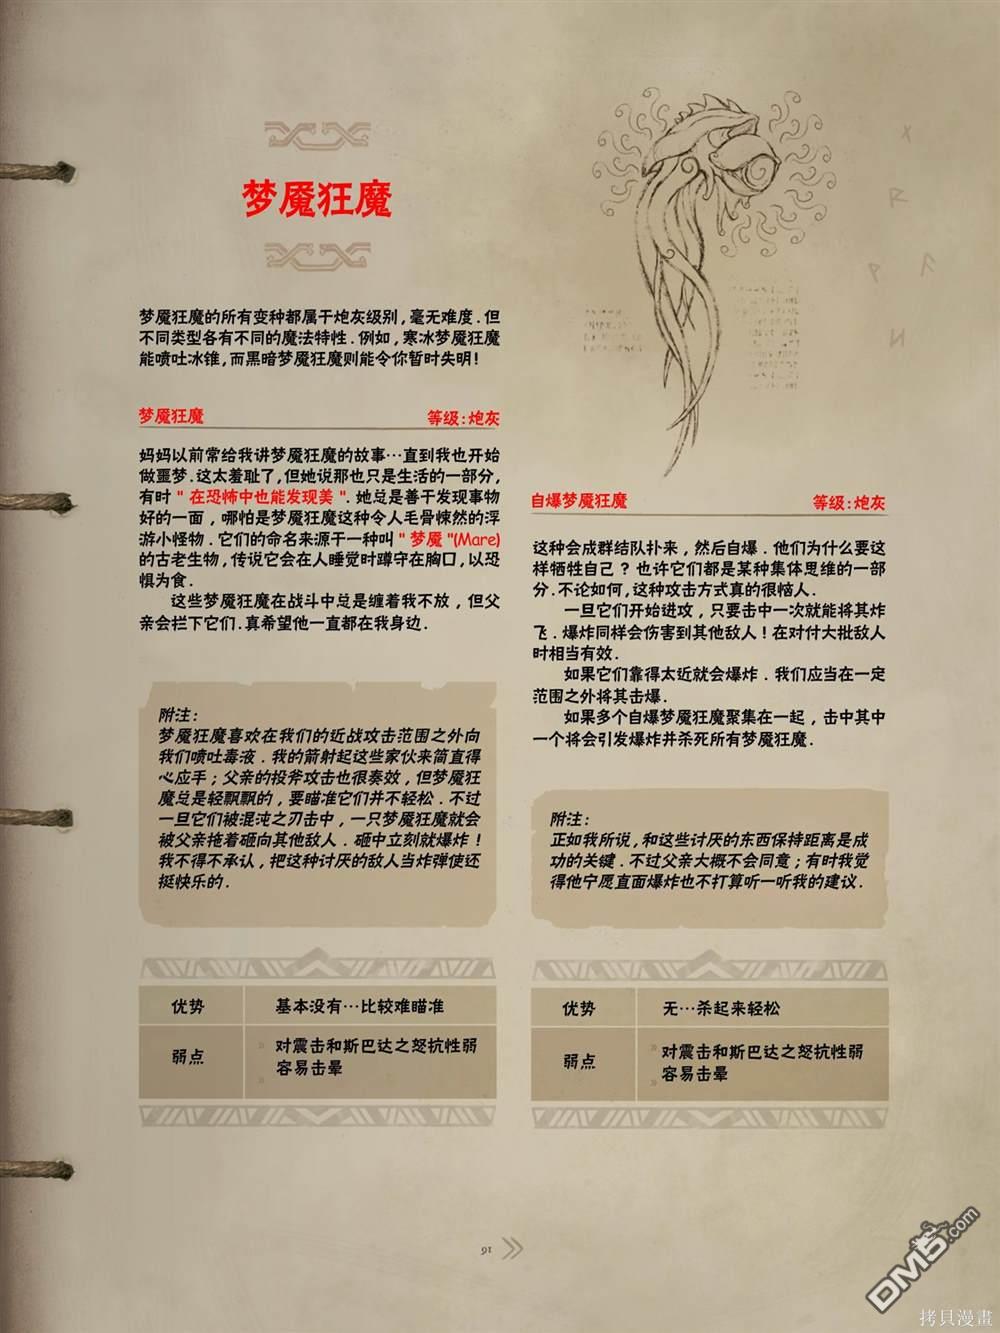 梦魇狂魔
梦魇狂魔的所有变种都属于炮灰级别,毫无难度.但
不同类型各有不同的魔法特性.例如,寒冰梦魇狂魔
能喷吐冰锥,而黑暗梦魇狂魔则能令你暂时失明!
梦魇狂魔 等级:炮灰
妈妈以前常给我讲梦魇狂魔的故事…直到我也开始
做噩梦.这太羞耻了,但她说那也只是生活的一部分,
有时 " 在恐怖中也能发现美 ". 她总是善于发现事物
好的一面 , 哪怕是梦魇狂魔这种令人毛骨悚然的浮
游小怪物 . 它们的命名来源于一种叫 " 梦魔 "(Mare)
的古老生物, 传说它会在人睡觉时蹲守在胸口, 以恐
惧为食.
这些梦魇狂魔在战斗中总是缠着我不放 , 但父
亲会拦下它们.真希望他一直都在我身边.
附注:
梦魇狂魔喜欢在我们的近战攻击范围之外向
我们喷吐毒液 . 我的箭射起这些家伙来简直得
心应手 ; 父亲的投斧攻击也很奏效 , 但梦魇狂
魔总是轻飘飘的 , 要瞄准它们并不轻松 . 不过
一旦它们被混沌之刃击中 , 一只梦魇狂魔就会
被父亲拖着砸向其他敌人 . 砸中立刻就爆炸 !
我不得不承认 , 把这种讨厌的敌人当炸弹使还
挺快乐的 .
优势 基本没有…比较难瞄准
弱点 » 对震击和斯巴达之怒抗性弱
» 容易击晕
自爆梦魇狂魔 等级:炮灰
这种会成群结队扑来 , 然后自爆 . 他们为什么要这
样牺牲自己 ? 也许它们都是某种集体思维的一部
分.不论如何,这种攻击方式真的很恼人.
一旦它们开始进攻 , 只要击中一次就能将其炸
飞 . 爆炸同样会伤害到其他敌人 ! 在对付大批敌人
时相当有效.
如果它们靠得太近就会爆炸 . 我们应当在一定
范围之外将其击爆.
如果多个自爆梦魇狂魔聚集在一起 , 击中其中
一个将会引发爆炸并杀死所有梦魇狂魔.
附注:
正如我所说 , 和这些讨厌的东西保持距离是成
功的关键 . 不过父亲大概不会同意 ; 有时我觉
得他宁愿直面爆炸也不打算听一听我的建议 .
优势 无…杀起来轻松
弱点 » 对震击和斯巴达之怒抗性弱
» 容易击晕
91 »
DM5.com
拷貝漫畫